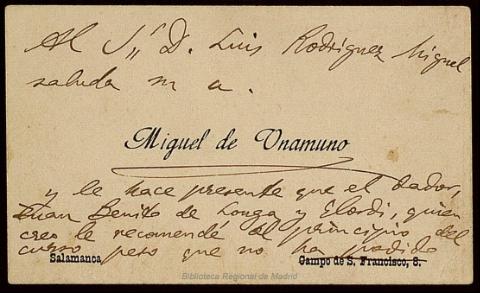 Al Sr D. Luis Rodríguez Miguel
saluda su a.
Miguel de Unamuno
y le hace presente que el dador,
Juan Benito de Longa y Elordi, quien
creo le recomendé al principio del
curso pero que no ha podido
Salamanca Campo de S. Francisco, 8.
Biblioteca Regional de Madrid